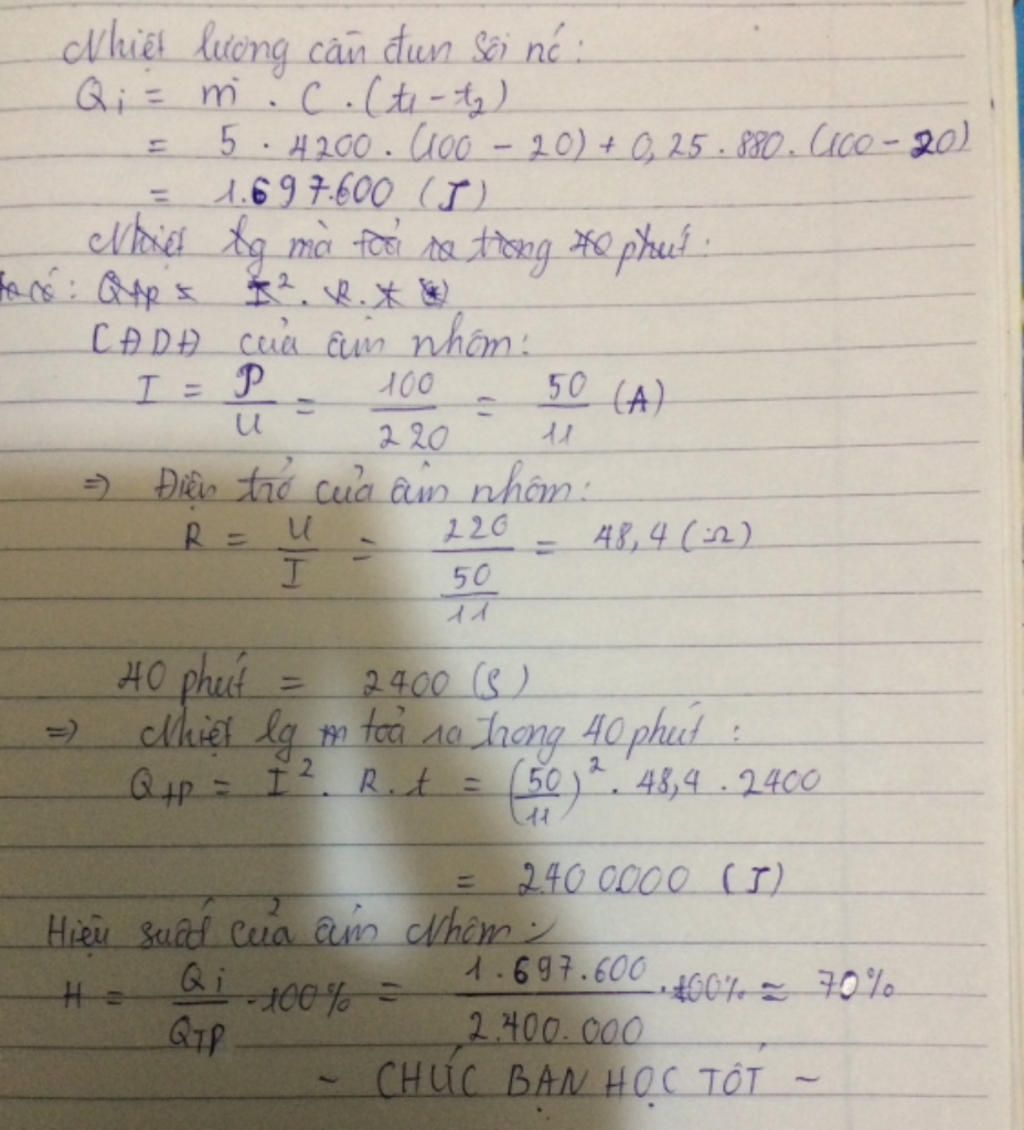 Nhiệt lượng cần đun sôi nc:
Qi = m . C . (t1 - t2)
= 5 . 4200 . (100 - 20) + 0,25 . 880 . (100 - 20)
= 1.697.600 (J)
Nhiệt lg mà toả ra trong 40 phút:
Ta có: Qtp = I². R. t
CĐDĐ của ấm nhôm:
I = P/U = 100/220 = 50/11 (A)
=> Điện trở của ấm nhôm:
R = U/I = 220/(50/11) = 48,4 (Ω)
40 phút = 2400 (s)
=> Nhiệt lg m toả ra trong 40 phút :
Qtp = I². R. t = (50/11)². 48,4 . 2400
= 2400000 (J)
Hiệu suất của ấm Nhôm:
H = Qi/QTP . 100% = 1.697.600/2.400.000 . 100% ≈ 70%
~ CHÚC BẠN HỌC TỐT ~